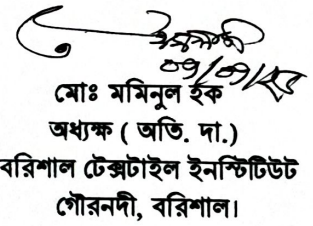 মোঃ মমিনুল হক
অধ্যক্ষ ( অতি. দা.)
বরিশাল টেক্সটাইল ইনস্টিটিউট
গৌরনদী, বরিশাল।